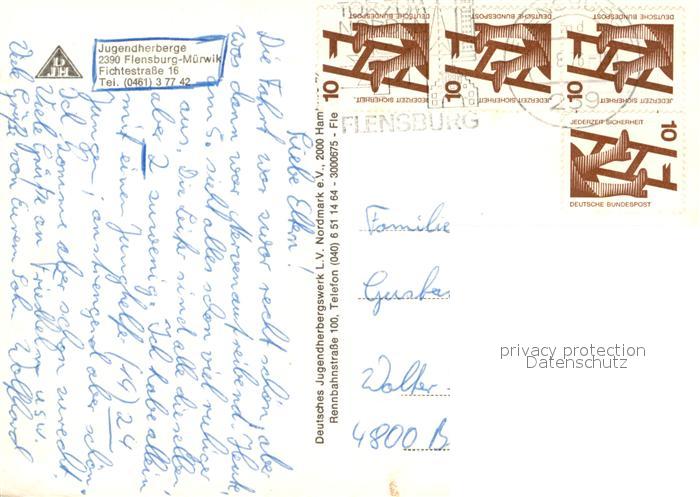 Jugendherberge
2390 Flensburg-Mürwik
Fichtestraße 16
Tel. (0461) 3 77 42
DJH
Liebe Eltern!
Die Fahrt war zwar recht schön, aber
was dann war Nervenaufreibend. Heute,
5. sieht alles schon viel ruhiger
aus. Die Leiter sind alle dieselben
aber 2 zuwenig. Ich habe allein
mit einem Junghelfer (14) 24
Jungen, anstrengend aber schön.
Ich komme aber schon zurecht.
Viele Grüße an Friedhelm usw.
Viele Grüße von Eurem Sohn Wolfhard
Deutsches Jugendherbergswerk L.V. Nordmark e.V., 2000 Ham
Rennbahnstraße 100, Telefon (040) 6 51 14 64 - 3000675 - Fle
FLENSBURG
239
10
JEDERZEIT SICHERHEIT
DEUTSCHE BUNDESPOST
10
JEDERZEIT SICHERHEIT
DEUTSCHE BUNDESPOST
10
JEDERZEIT SICHERHEIT
DEUTSCHE BUNDESPOST
10
JEDERZEIT SICHERHEIT
DEUTSCHE BUNDESPOST
Familie
Gustav
Walter
4800 B
privacy protection
Datenschutz